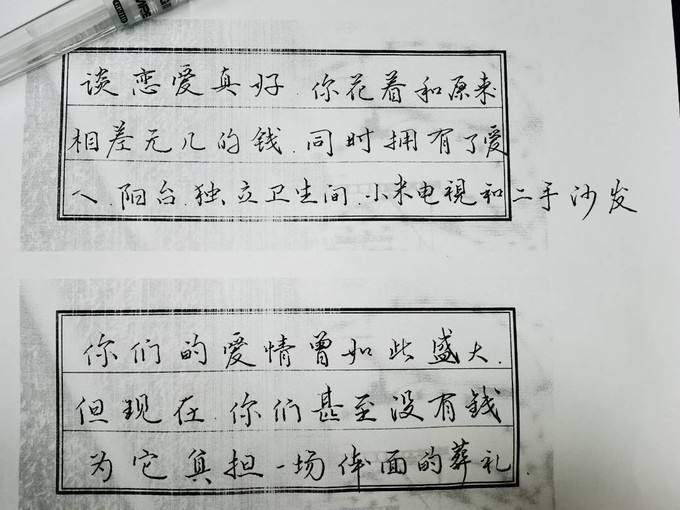 谈恋爱真好.你花着和原来
相差无几的钱.同时拥有了爱
人.阳台.独立卫生间.小米电視和二手沙发
你们的爱情曾如此盛大.
但现在.你们甚至没有钱
为它負担一场体面的葬礼.